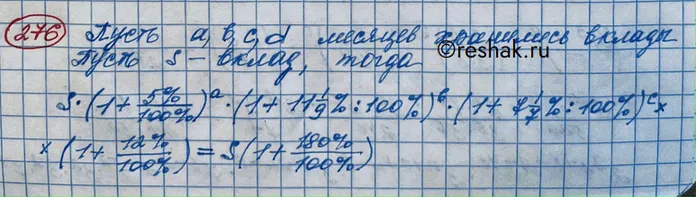 276 Пусть a, b, c, d месяцев хранились вклады
©reshak.ru
Пусть S – вклад, тогда
S·(1+5%/100%)^a·(1+11 1/9%:100%)^b·(1+7 1/7%:100%)^c ×
×(1+12%/100%)=S(1+180%/100%)